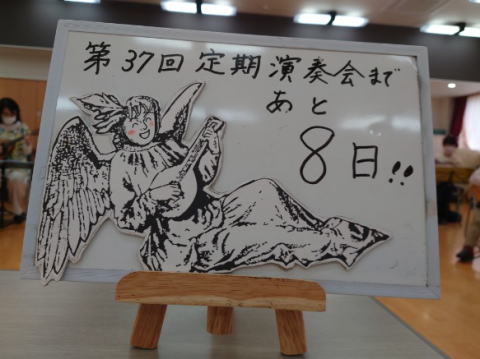 第37回定期演奏会まで
あと
8日!!